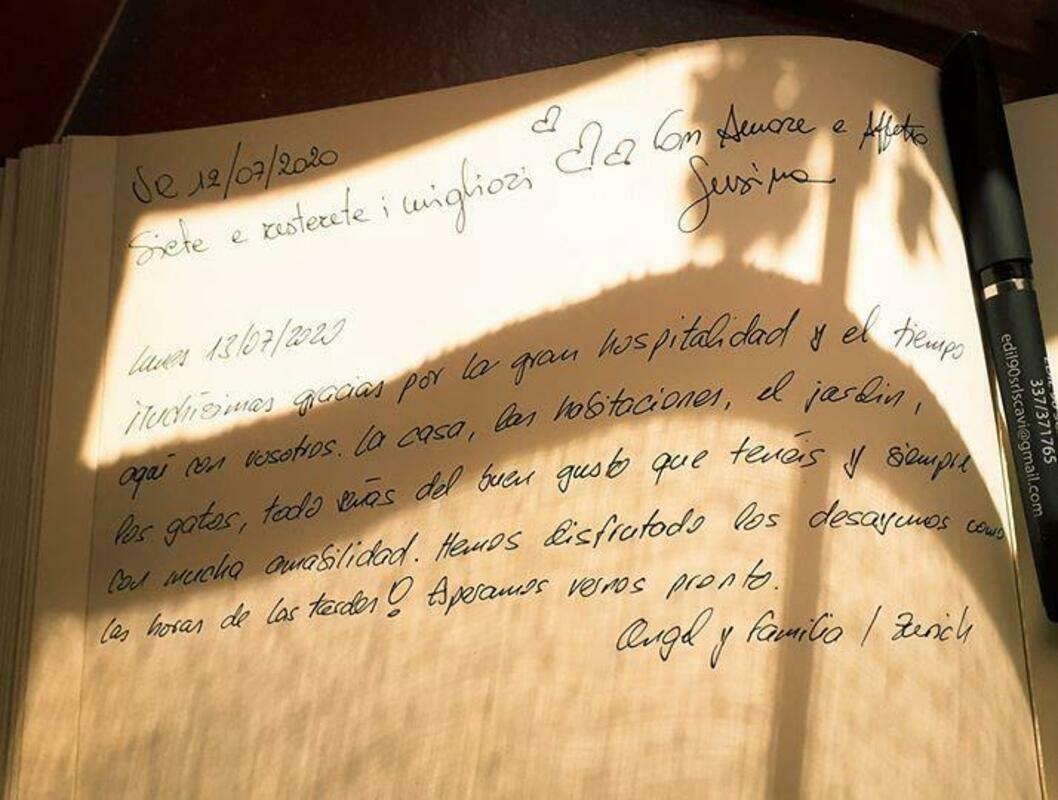 12/07/2020
Siete e resterete i migliori
Con Amore e Affetto
lunes 13/07/2020
Muchísimas gracias por la gran hospitalidad y el tiempo
aquí con vosotros. La casa, las habitaciones, el jardín,
los gatos, todo del buen gusto que tenéis y siempre
con mucha amabilidad. Hemos disfrutado los desayunos como
las horas de las tardes! Esperamos vernos pronto.
Angel y familia / Zürich
337/371765
edil90srlscavi@gmail.com